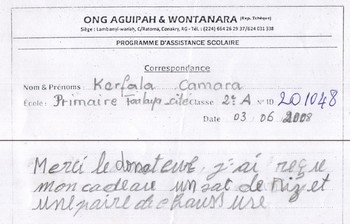 ONG AGUIPAH & WONTANARA (Rep. Tchèque)
Siège : Lambanyi-wariah, C/Ratoma, Conakry, RG - Tél. : (224) 664 26 29 37/624 031 338
PROGRAMME D'ASSISTANCE SCOLAIRE
Correspondance
Nom & Prénoms : Kerfala Camara
École : Primaire cité Classe 2e A N° ID 201048
Date 03 06 2008
Merci le donateur, j'ai reçue
mon cadeau un sac de Riz et
une paire de chaussure